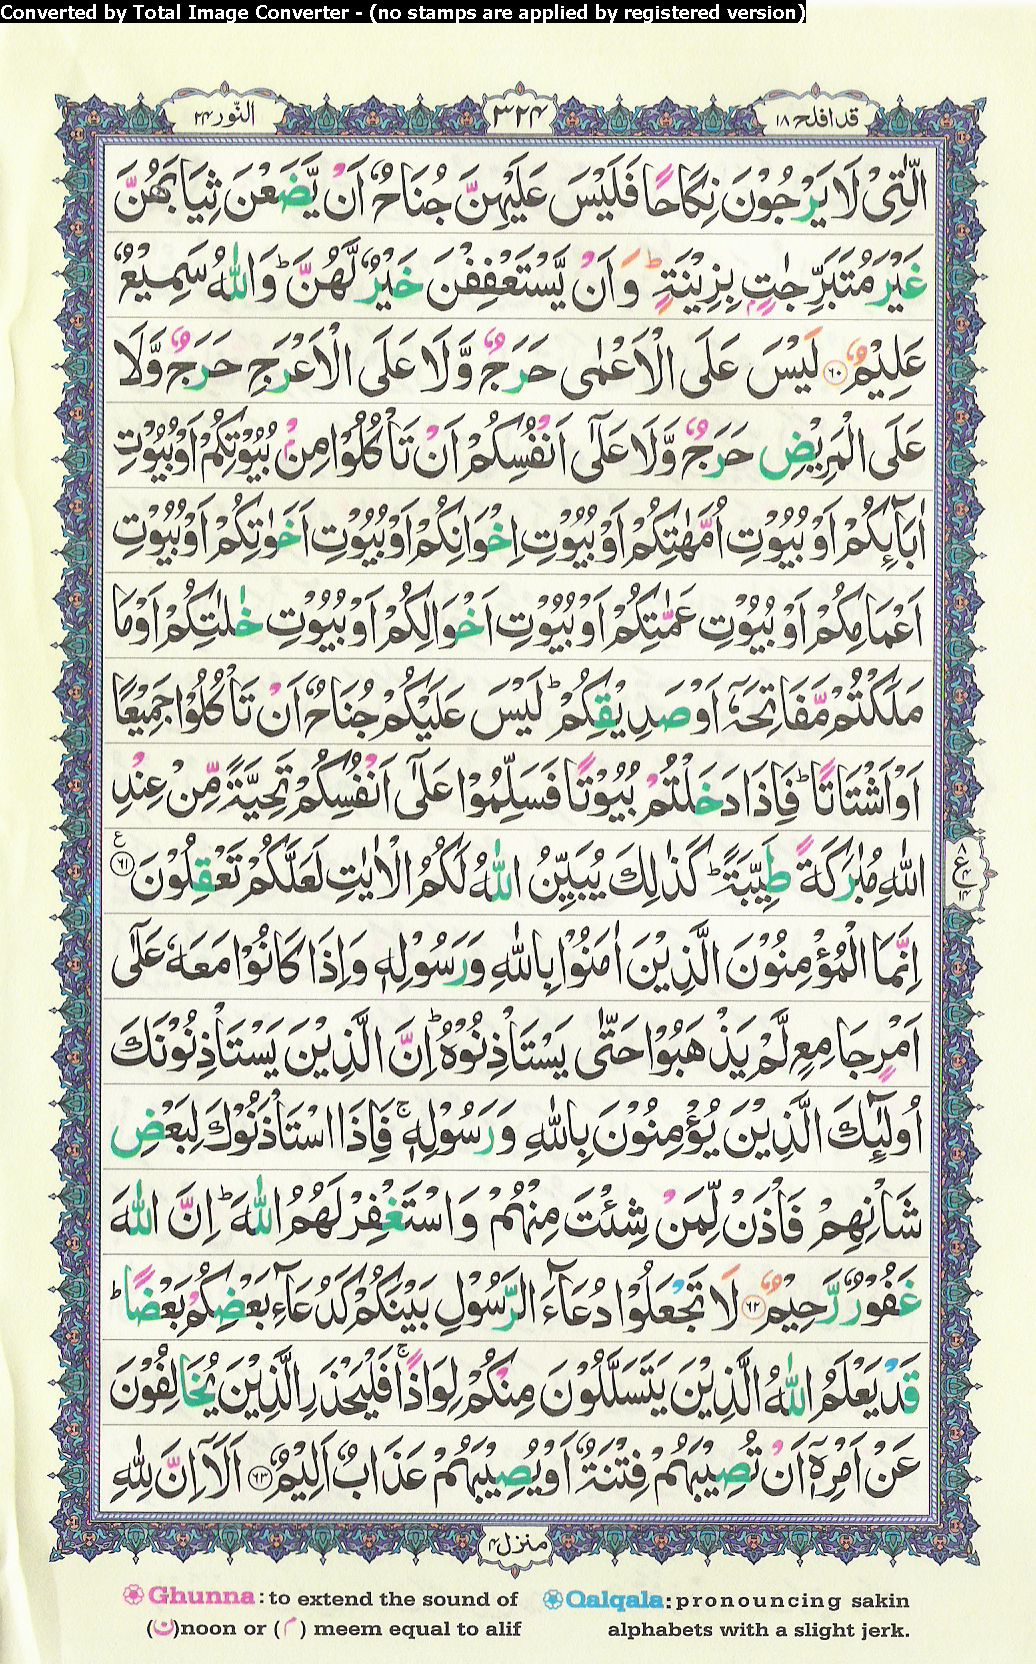 Converted by Total Image Converter - (no stamps are applied by registered version)
قد افلح ۱۸
۳۲۴
النّور ۲۴
الّٰتِیْ لَا یَرْجُوْنَ نِكَاحًا فَلَیْسَ عَلَیْهِنَّ جُنَاحٌ اَنْ یَّضَعْنَ ثِیَابَهُنَّ
غَیْرَ مُتَبَرِّجٰتٍۭ بِزِیْنَةٍ ؕ وَ اَنْ یَّسْتَعْفِفْنَ خَیْرٌ لَّهُنَّ ؕ وَاللّٰهُ سَمِیْعٌ
عَلِیْمٌ ۶۰ لَیْسَ عَلَی الْاَعْمٰی حَرَجٌ وَّلَا عَلَی الْاَعْرَجِ حَرَجٌ وَّلَا
عَلَی الْمَرِیْضِ حَرَجٌ وَّلَا عَلٰۤی اَنْفُسِكُمْ اَنْ تَاْكُلُوْا مِنْۢ بُیُوْتِكُمْ اَوْ بُیُوْتِ
اٰبَآىِٕكُمْ اَوْ بُیُوْتِ اُمَّهٰتِكُمْ اَوْ بُیُوْتِ اِخْوَانِكُمْ اَوْ بُیُوْتِ اَخَوٰتِكُمْ اَوْ بُیُوْتِ
اَعْمَامِكُمْ اَوْ بُیُوْتِ عَمّٰتِكُمْ اَوْ بُیُوْتِ اَخْوَالِكُمْ اَوْ بُیُوْتِ خٰلٰتِكُمْ اَوْ مَا
مَلَكْتُمْ مَّفَاتِحَهٗۤ اَوْ صَدِیْقِكُمْ ؕ لَیْسَ عَلَیْكُمْ جُنَاحٌ اَنْ تَاْكُلُوْا جَمِیْعًا
اَوْ اَشْتَاتًا ؕ فَاِذَا دَخَلْتُمْ بُیُوْتًا فَسَلِّمُوْا عَلٰۤی اَنْفُسِكُمْ تَحِیَّةً مِّنْ عِنْدِ
اللّٰهِ مُبٰرَكَةً طَیِّبَةً ؕ كَذٰلِكَ یُبَیِّنُ اللّٰهُ لَكُمُ الْاٰیٰتِ لَعَلَّكُمْ تَعْقِلُوْنَ ۶۱ ع
۸ ع ۴ ۱۴
اِنَّمَا الْمُؤْمِنُوْنَ الَّذِیْنَ اٰمَنُوْا بِاللّٰهِ وَرَسُوْلِهٖ وَاِذَا كَانُوْا مَعَهٗ عَلٰۤی
اَمْرٍ جَامِعٍ لَّمْ یَذْهَبُوْا حَتّٰی یَسْتَاْذِنُوْهُ ؕ اِنَّ الَّذِیْنَ یَسْتَاْذِنُوْنَكَ
اُولٰٓىِٕكَ الَّذِیْنَ یُؤْمِنُوْنَ بِاللّٰهِ وَرَسُوْلِهٖ ۚ فَاِذَا اسْتَاْذَنُوْكَ لِبَعْضِ
شَاْنِهِمْ فَاْذَنْ لِّمَنْ شِئْتَ مِنْهُمْ وَاسْتَغْفِرْ لَهُمُ اللّٰهَ ؕ اِنَّ اللّٰهَ
غَفُوْرٌ رَّحِیْمٌ ۶۲ لَا تَجْعَلُوْا دُعَآءَ الرَّسُوْلِ بَیْنَكُمْ كَدُعَآءِ بَعْضِكُمْ بَعْضًا ؕ
قَدْ یَعْلَمُ اللّٰهُ الَّذِیْنَ یَتَسَلَّلُوْنَ مِنْكُمْ لِوَاذًا ۚ فَلْیَحْذَرِ الَّذِیْنَ یُخَالِفُوْنَ
عَنْ اَمْرِهٖۤ اَنْ تُصِیْبَهُمْ فِتْنَةٌ اَوْ یُصِیْبَهُمْ عَذَابٌ اَلِیْمٌ ۶۳ اَلَاۤ اِنَّ لِلّٰهِ
منزل ۴
Ghunna: to extend the sound of (ن)noon or (م) meem equal to alif
Qalqala: pronouncing sakin alphabets with a slight jerk.